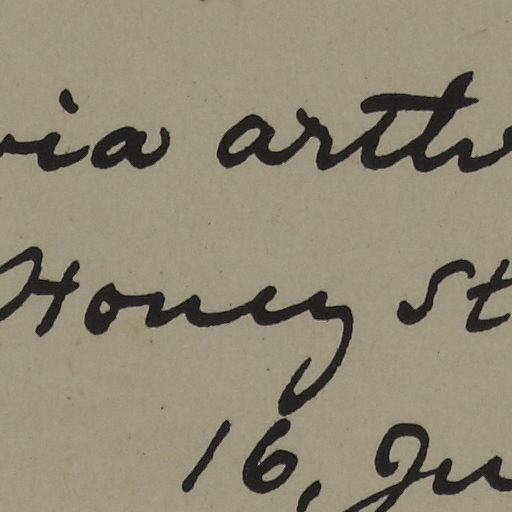 via arth
Honey St
16, Ju